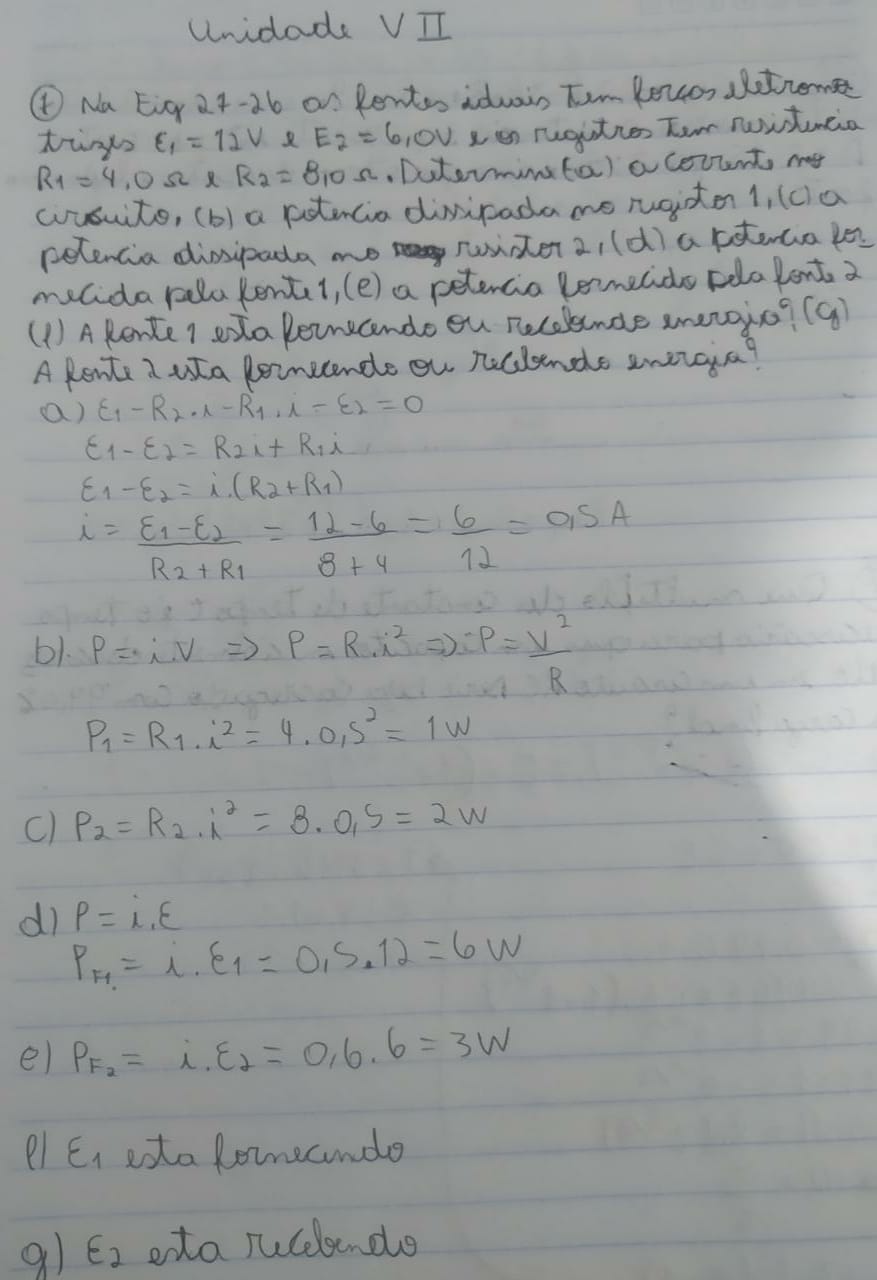 Unidade VII
① Na Fig 27-26 as fontes iduais tem forcas eletromo
trizes ε1 = 12V e E2 = 6,0V e os registros tem resistencia
R1 = 4,0 Ω e R2 = 8,0 Ω. Determine (a) a corrente no
circuito, (b) a potencia dissipada no registor 1, (c) a
potencia dissipada no resistor 2, (d) a potencia for
necida pela fonte 1, (e) a potencia fornecido pela fonte 2
(f) A fonte 1 esta fornecendo ou recebendo energia? (g)
A fonte 2 esta fornecendo ou recebendo energia?
a) ε1 - R2.i - R1.i - ε2 = 0
ε1 - ε2 = R2i + R1i
ε1 - ε2 = i.(R2+R1)
i = ε1-ε2/R2+R1 = 12-6/8+4 = 6/12 = 0,5 A
b) P = i.V => P = R.i² => P = V²/R
P1 = R1.i² = 4.0,5² = 1W
c) P2 = R2.i² = 8.0,5 = 2W
d) P = i.ε
PF1 = i.ε1 = 0,5.12 = 6W
e) PF2 = i.ε2 = 0,6.6 = 3W
f) ε1 esta fornecendo
g) ε2 esta recebendo